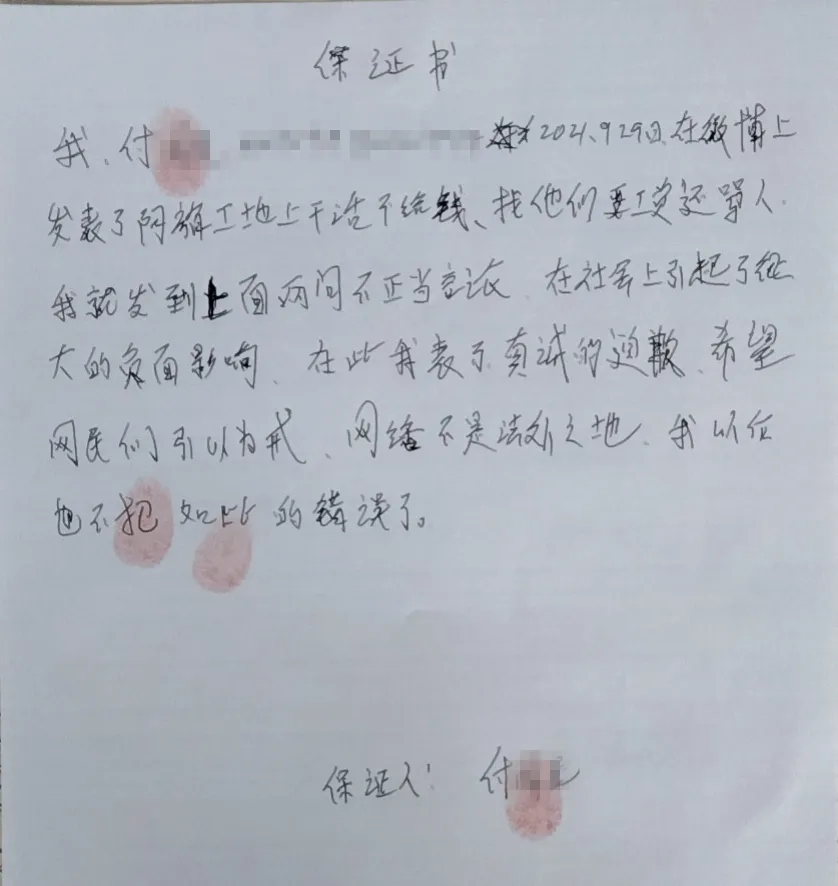 保证书
我、付 2021、9 29日、在微博上
发表了阿旗工地上干活不给钱、找他们要工资还骂人.
我就发到上面两间不正当言论、在社会上引起了极
大的负面影响、在此我表示真诚的道歉、希望
网民们引以为戒、网络不是法外之地、我以后
也不犯如此的错误了。
保证人: 付